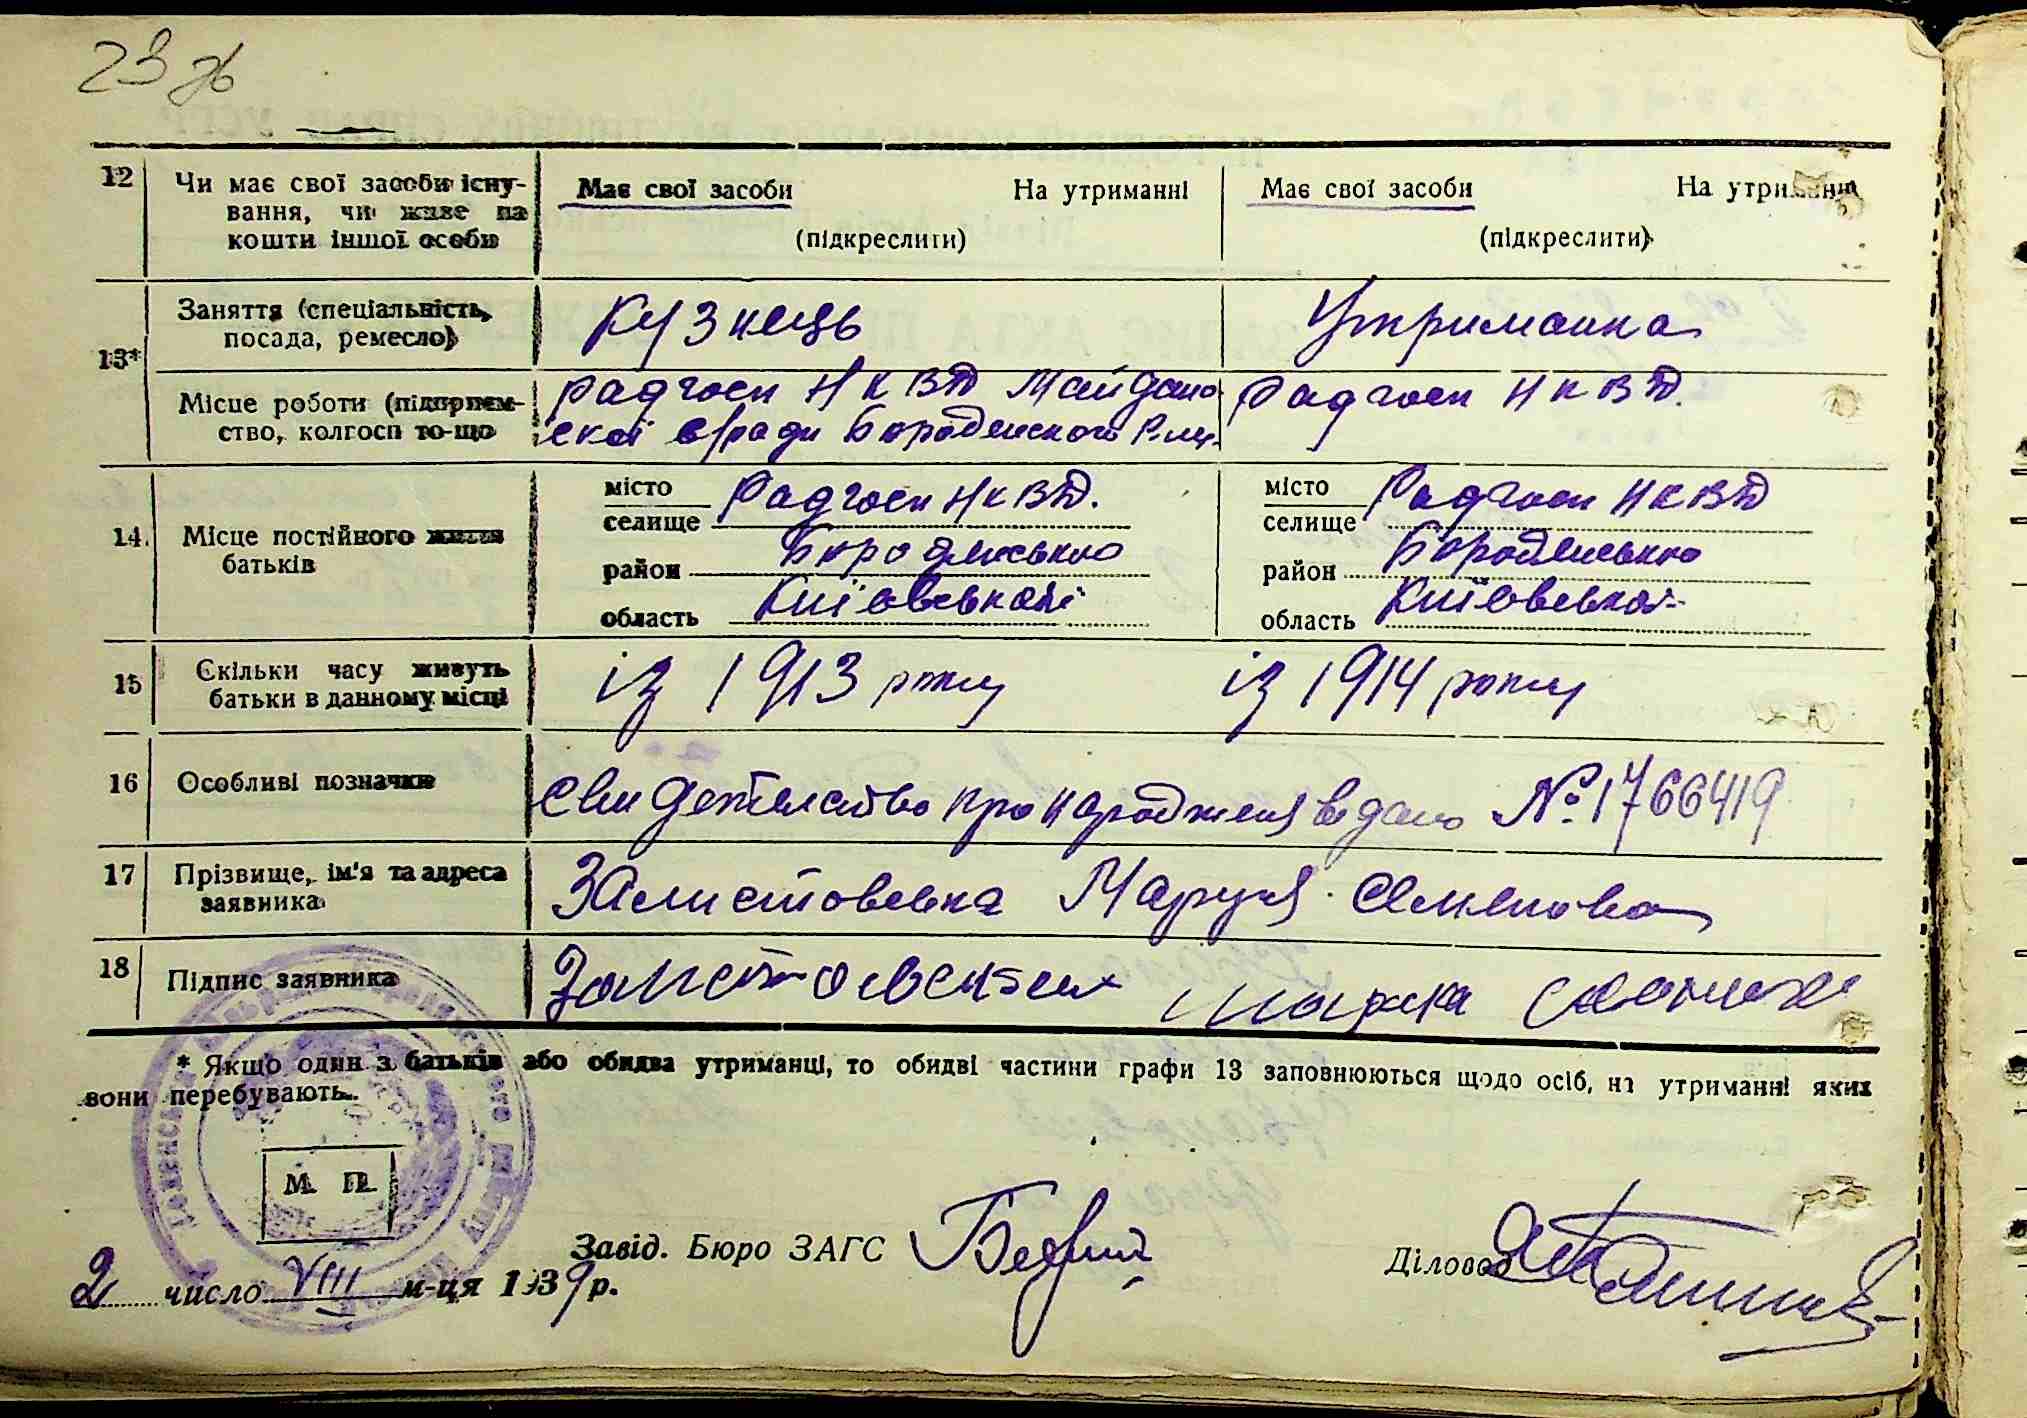 23 зв
12 Чи має свої засоби існу- Має свої засоби На утриманні Має свої засоби На утриманні
вання, чи живе на
кошти іншої особи (підкреслити) (підкреслити)
13* Заняття (спеціальність, Кузнець Утриманка
посада, ремесло)
Місце роботи (підприєм- Радгосп НКВД Майдано- Радгосп НКВД.
ство, колгосп то-що ської с/ради Бородянского
14. Місце постійного життя батьків
місто Радгосп НКВД. місто Радгосп НКВД
селище селище
район Бородянського район Бородянського
область Київської область Київської
15 Скільки часу живуть із 1913 року із 1914 року
батьки в данному місці
16 Особливі позначки Свидетельство про народженя видано № 1766419
17 Прізвище, ім'я та адреса Замистовська Маруся Семенова
заявника
18 Підпис заявника
* Якщо один з батьків або обидва утриманці, то обидві частини графи 13 заповнюються щодо осіб, на утриманні яких
вони перебувають.
М. П.
Завід. Бюро ЗАГС Діловод
2 число VIII м-ця 1939 р.